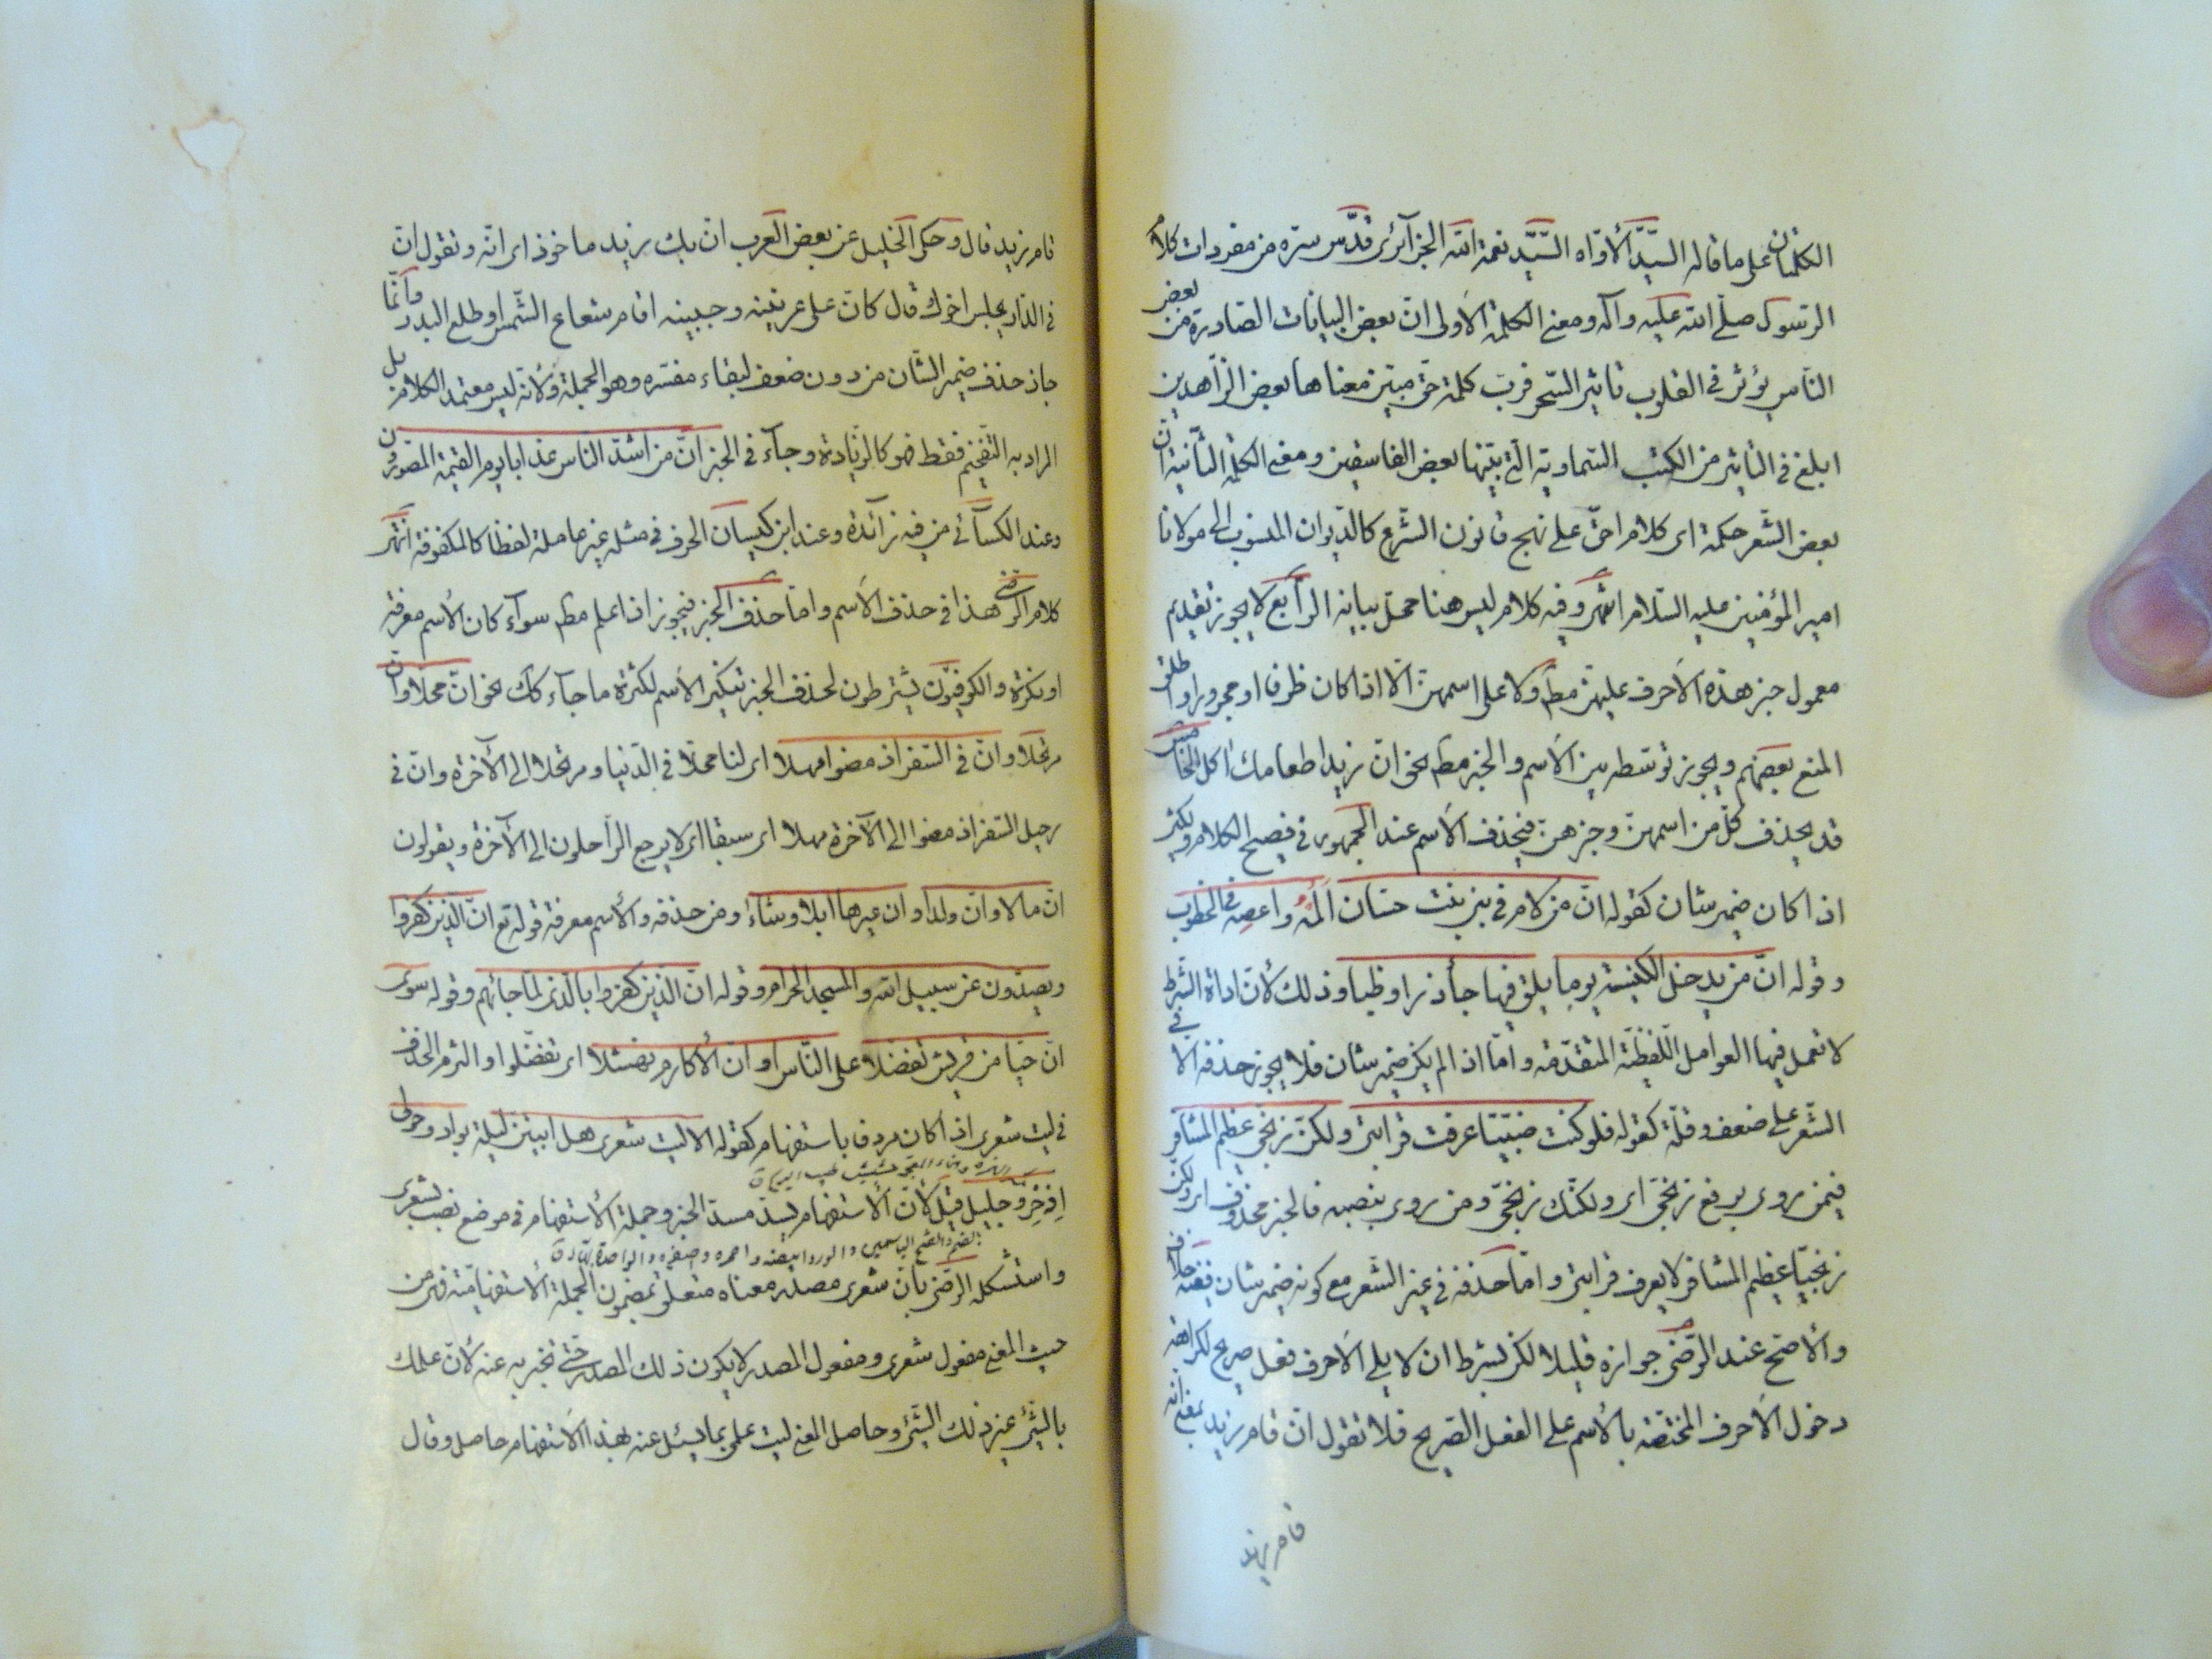 الكلمتان على ما قاله السيّد الأوّاه السيّد نعمة الله الجزآئرى قدّس سرّه من مفردات كلام
الرسول صلّى الله عليه وآله ومعنى الكلمة الأولى انّ بعض البيانات الصّادرة من بعض
النّاس يؤثر فى القلوب تاثير السّحر فربّ كلمة حقّ مبيّن معناها بعض الزّاهدين
ابلغ فى التأثير من الكتب السّماويّة الّتى بيّنها بعض الفاسقين ومعنى الكلمة الثّانية انّ
بعض الشّعر حكمة اى كلام احقّ على نهج قانون الشّرع كالدّيوان المنسوب الى مولانا
امير المؤمنين عليه السّلام انتهى وفيه كلام ليس هنا محلّ بيانه الرّابع لا يجوز تقديم
معمول خبر هذه الأحرف عليهنّ مطَ ولا على اسمهنّ الّا اذا كان ظرفا او مجرورا واطلق
المنع بعضهم ويجوز توسّطه بين الأسم والخبر مطَ نحو انّ زيدا طعامك اكل الخامس
قد يحذف كلّ من اسمهنّ وخبرهنّ فيحذف الأسم عند الجمهور فى فصيح الكلام ويكثر
اذا كان ضمير شان كقوله انّ من لام فى بنى بنت حسّان اَلُمْهُ واعصِه فى الخطوب
وقوله انّ من يدخل الكنيسة يوما يلق فيها جأذرا وظباء وذلك لأنّ اداة الشّرط
لا تعمل فيها العوامل اللّفظيّة المتقدّمة وامّا اذا لم يكن ضمير شان فلا يجوز حذفه الّا فى
الشّعر على ضعف وقلّة كقوله فلو كنت ضبّيّا عرفت قرابتى ولكنّ زنجىّ عظيم المشافر
فيمن روى برفع زنجىّ اى ولكنّك زنجىّ ومن روى بنصبه فالخبر محذوف اى ولكنّ
زنجيّا عظيم المشافر لا يعرف قرابتى وامّا حذفه فى غير الشّعر مع كونه ضمير شان ففيه خلاف
والأصحّ عند الرّضى جوازه قليلا لكن بشرط ان لا يلى الأحرف فعل صريح لكراهة
دخول الأحرف المختصّة بالأسم على الفعل الصّريح فلا تقول انّ قام زيد بمعنى انّه
قام زيد
قام زيد قال وحكى الخليل عن بعض العرب انّ بك زيد ماخوذ اى انّه وتقول انّ
فى الدّار يجلس اخوك قال كانّ على عرنينه وجبينه اقام شعاع الشّمس او طلع البدر وانّما
جاز حذف ضمير الشّان من دون ضعف لبقاء مفسّره وهو الجملة ولأنّه ليس معتمد الكلام بل
المراد به التّفخيم فقط فهو كالزّيادة وجآء فى الخبر انّ من اشدّ النّاس عذابا يوم القيمة المصوّرون
وعند الكسآئى من فيه زآئدة وعند ابن كيسان الحرف فى مثله غير عاملة لفظا كالمكفوفة انتهى
كلام الرّضى هذا فى حذف الأسم وامّا حذف الخبر فيجوز اذا علم مطَ سوآء كان الأسم معرفة
او نكرة والكوفيّون يشترطون لحذف الخبر تنكير الأسم لكثرة ما جآء كك نحو انّ محلّا وانّ
مرتحلا وانّ فى السّفر اذ مضوا مهلا اى لنا محلّا فى الدّنيا ومرتحلا الى الأخرة وانّ فى
رحيل السّفر اذ مضوا الى الآخرة مهلا اى سبقا اى لا يرجع الرّاحلون الى الأخرة ويقولون
انّ مالا وانّ ولدا وانّ غيرها ابلا وشاء ومن حذفه والأسم معرفة قوله تع انّ الّذين كفروا
ويصدّون عن سبيل الله والمسجد الحرام وقوله انّ الّذين كفروا بالذّكر لمّا جائهم وقوله سوى
انّ حيّا من قريش تفضّلا على النّاس او انّ الأكارم نهشلا اى تفضّلوا والتزم الحذف
فى ليت شعرى اذا كان مردفا باستفهام كقوله الا ليت شعرى هل ابيتنّ ليلة بواد وحولى
اِذْخِر وجليل قيل لأنّ الأستفهام يسدّ مسدّ الخبر وجملة الأستفهام فى موضع نصب بشعرى
واستشكله الرّضى بانّ شعرى مصدر معناه متعلّق بمضمون الجملة الأستفهاميّة فهى من
حيث المعنى مفعول شعرى ومفعول المصدر لا يكون ذلك المصدر حتّى تخبر به عنه لأنّ علمك
بالشّىء غير ذلك الشّىء وحاصل المعنى ليت علمى بما يسئل عنه بهذا الأستفهام حاصل وقال